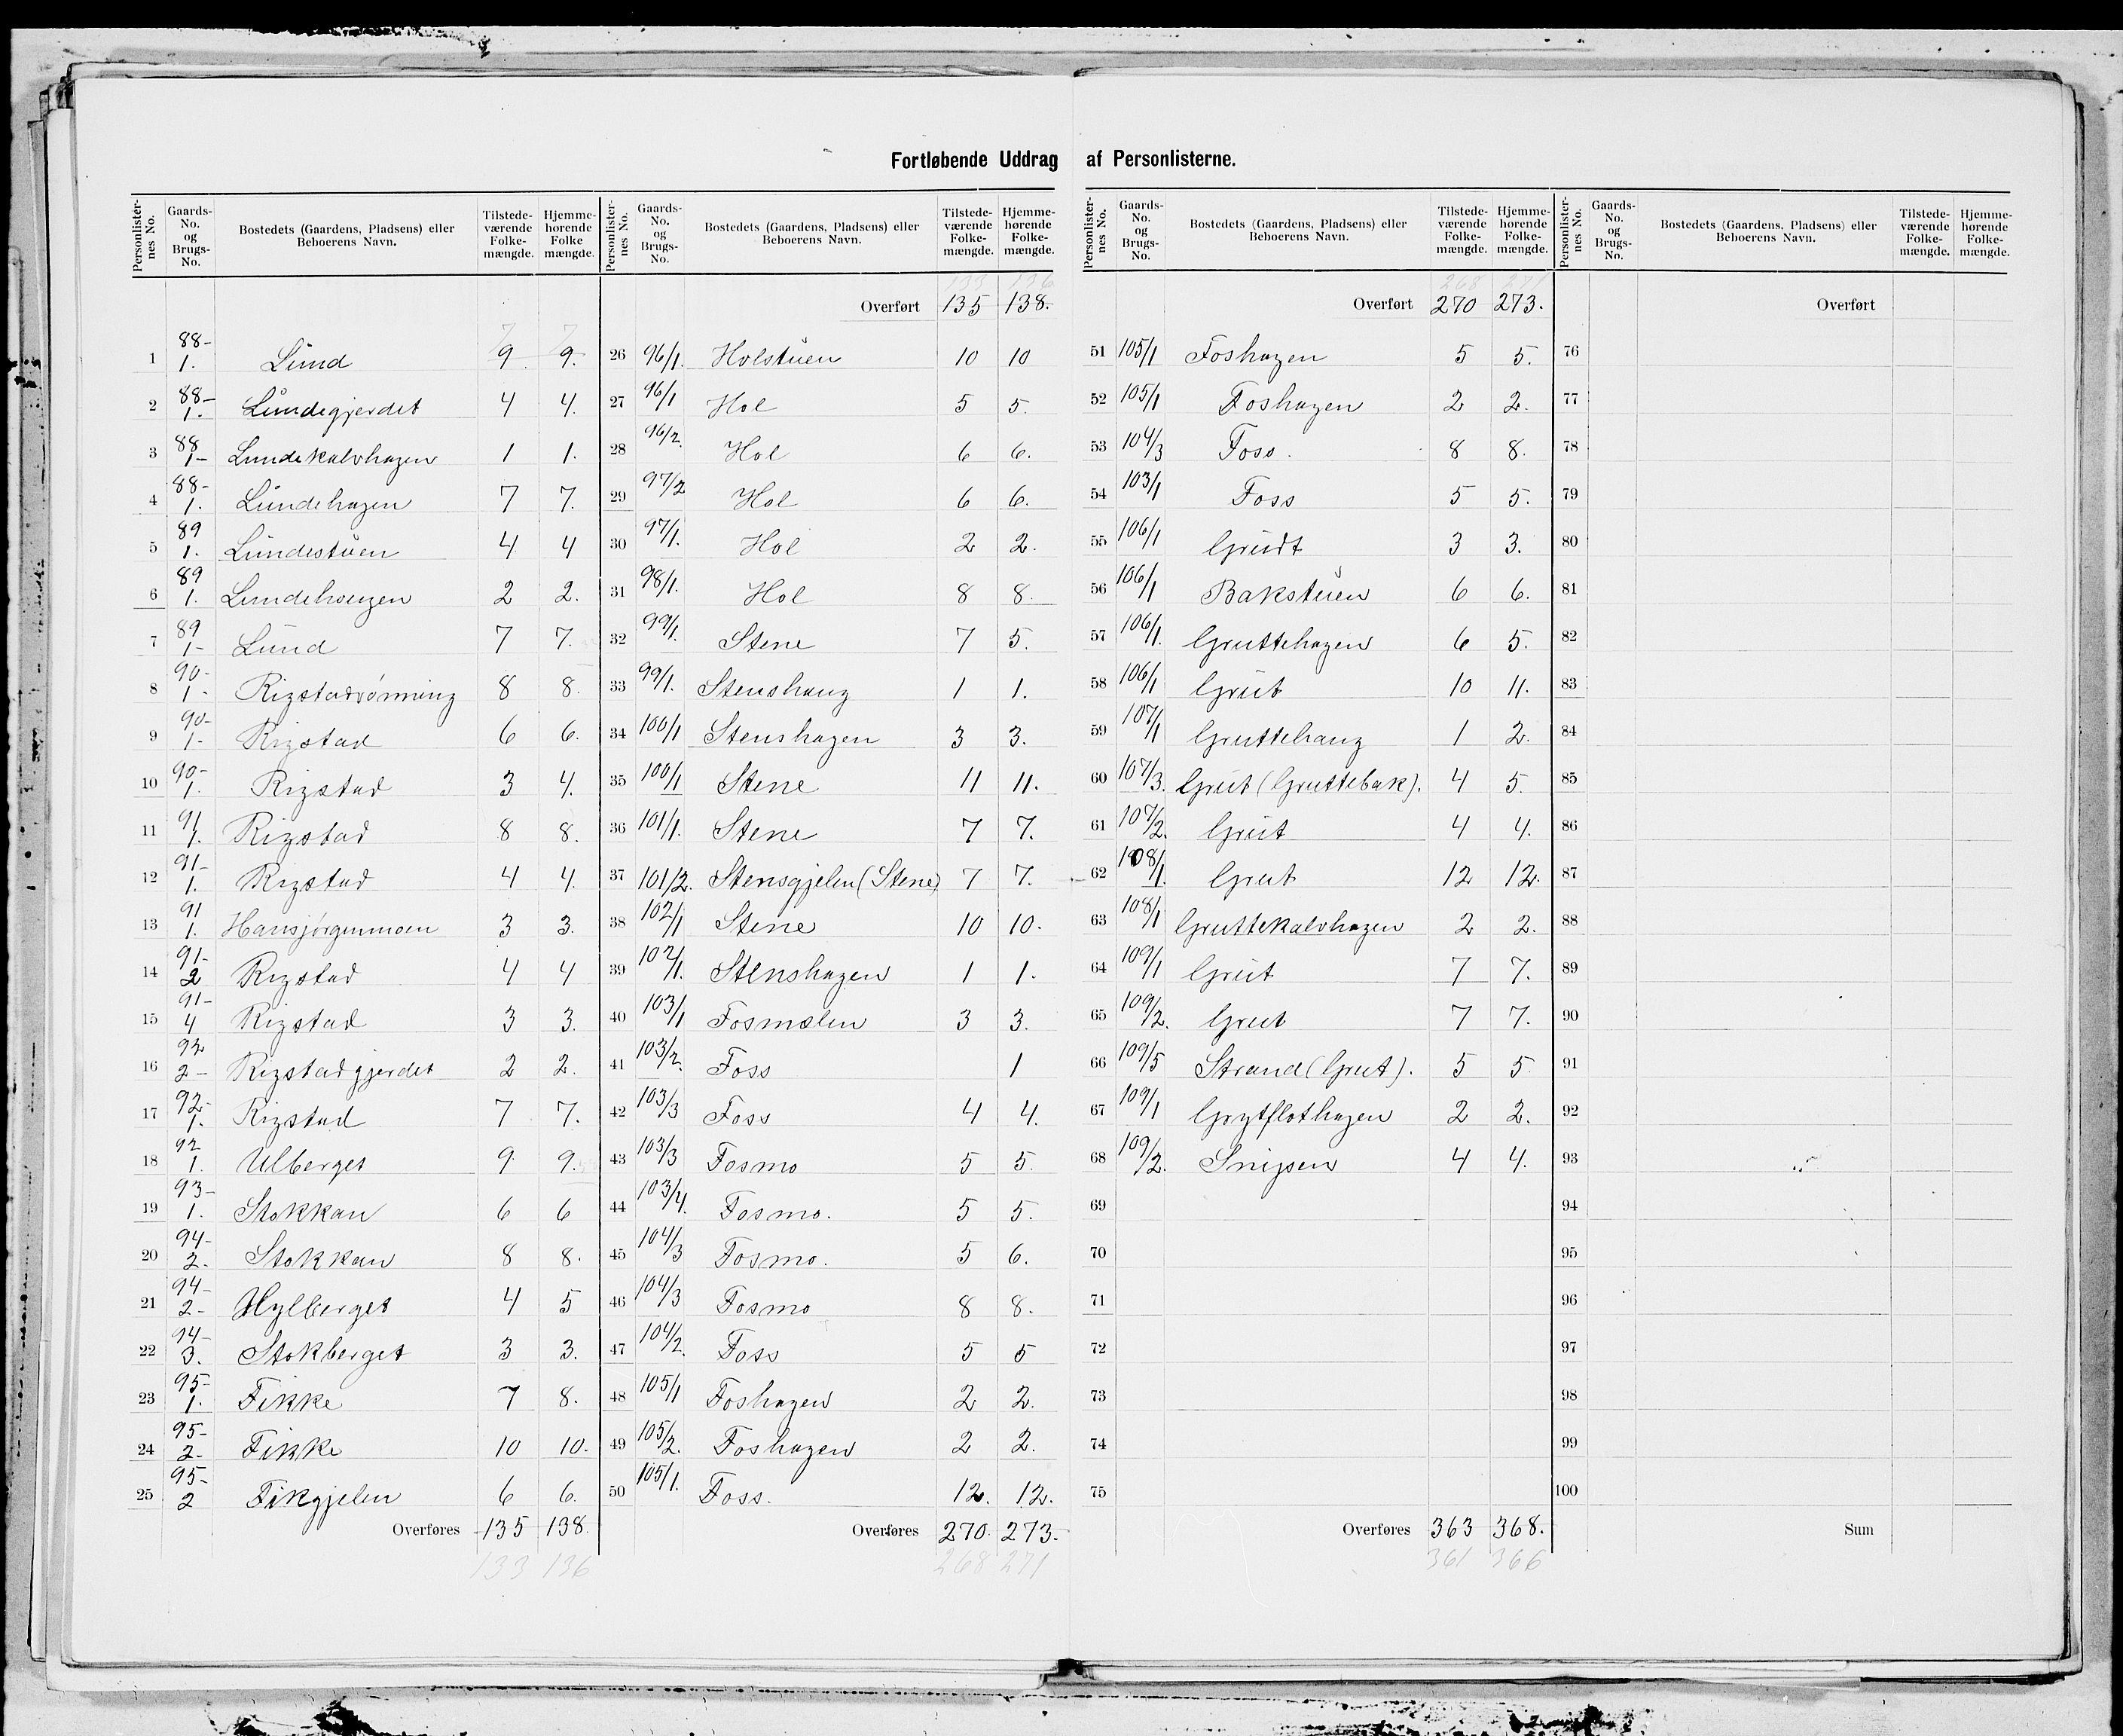 Fortløbende Uddrag af Personlisterne.
Personlister-nes No. Gaards-No. og Brugs-No. Bostedets (Gaardens, Pladsens) eller Beboerens Navn. Tilstede-værende Folke-mængde. Hjemme-hørende Folke mængde.
1 88-1. Lund 9 9. 7 7
2 88-1. Lundegjerdet 4 4.
3 88 1- Lundekalvhagen 1 1.
4 88-1. Lundehagen 7 7.
5 89 1. Lundestuen 4 4
6 89 1. Lundehaugen 2 2.
7 89 1- Lund 7 7.
8 90-1- Rigstadrønning 8 8.
9 90-1- Rigstad 6 6.
10 90-1. Rigstad 3 4.
11 91 1. Rigstad 8 8.
12 91-1. Rigstad 4 4.
13 91 1. Hansjørgenmoen 3 3.
14 91-2 Rigstad 4 4
15 91-4 Rigstad 3 3.
16 92 2- Rigstadgjerdet 2 2.
17 92-1. Rigstad 7 7.
18 92 1. Ulberget 9 9.
19 93-1. Stokkan 6 6
20 94-2. Stokkan 8 8.
21 94-2- Hylberget 4 5
22 94-3. Stokberget 3 3.
23 95-1. Fikke 7 8.
24 95-2- Fikke 10 10.
25 95-2 Fikgjelen 6 6.
Overføres 135 138.
133 136
Personlister-nes No. Gaards-No. og Brugs-No. Bostedets (Gaardens, Pladsens) eller Beboerens Navn. Tilstede-værende Folke-mængde. Hjemme-hørende Folke-mængde.
133 136
Overført 135 138.
26 96/1. Holstuen 10 10
27 96/1 Hol 5 5.
28 96/2. Hol 6 6.
29 97/2 Hol 6 6.
30 97/1. Hol 2 2.
31 98/1. Hol 8 8.
32 99/1. Stene 7 5.
33 99/1. Stenshaug 1 1.
34 100/1 Stenshagen 3 3.
35 100/1 Stene 11 11.
36 101/1. Stene 7 7.
37 101/2. Stensgjelen (Stene) 7 7.
38 102/1 Stene 10 10.
39 102/1. Stenshagen 1 1.
40 103/1 Fosmælen 3 3.
41 103/2. Foss 1
42 103/3 Foss 4 4.
43 103/3 Fosmo 5 5.
44 103/4. Fosmo. 5 5.
45 104/3 Fosmo. 5 6.
46 104/3 Fosmo 8 8.
47 104/2. Foss 5 5
48 105/1 Foshagen 2 2.
49 105/2. Foshagen 2 2.
50 105/1. Foss. 12. 12.
Overføres 270. 273.
268 271
Personlister-nes No. Gaards-No. og Brugs-No. Bostedets (Gaardens, Pladsens) eller Beboerens Navn. Tilstede-værende Folke-mængde. Hjemme-hørende Folke-mængde.
268 271
Overført 270 273.
51 105/1 Foshagen 5 5.
52 105/1 Foshagen 2 2.
53 104/3 Foss. 8 8.
54 103/1 Foss 5 5.
55 106/1 Grudt 3 3.
56 106/1 Bakstuen 6 6.
57 106/1. Gruttehagen 6 5.
58 106/1 Grut 10 11.
59 107/1 Gruttehaug 1 2.
60 107/3. Grut (Gruttebak). 4 5.
61 107/2. Grut 4 4.
62 108/1. Grut 12 12.
63 108/1 Gruttekalvhagen 2 2.
64 109/1 Grut 7 7.
65 109/2. Grut 7 7.
66 109/5 Strand (Grut). 5 5
67 109/1 Grytflothagen 2 2.
68 109/2. Snipen 4 4.
69
70
71
72
73
74
75
Overføres 363 368.
361 366
Personlister-nes No. Gaards-No. og Brugs-No. Bostedets (Gaardens, Pladsens) eller Beboerens Navn. Tilstede-værende Folke-mængde. Hjemme-hørende Folke-mængde.
Overført
76
77
78
79
80
81
82
83
84
85
86
87
88
89
90
91
92
93
94
95
96
97
98
99
100
Sum